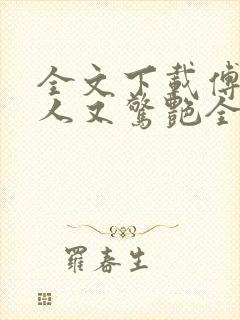 全文下载傅
人又驚艷全
羅春生